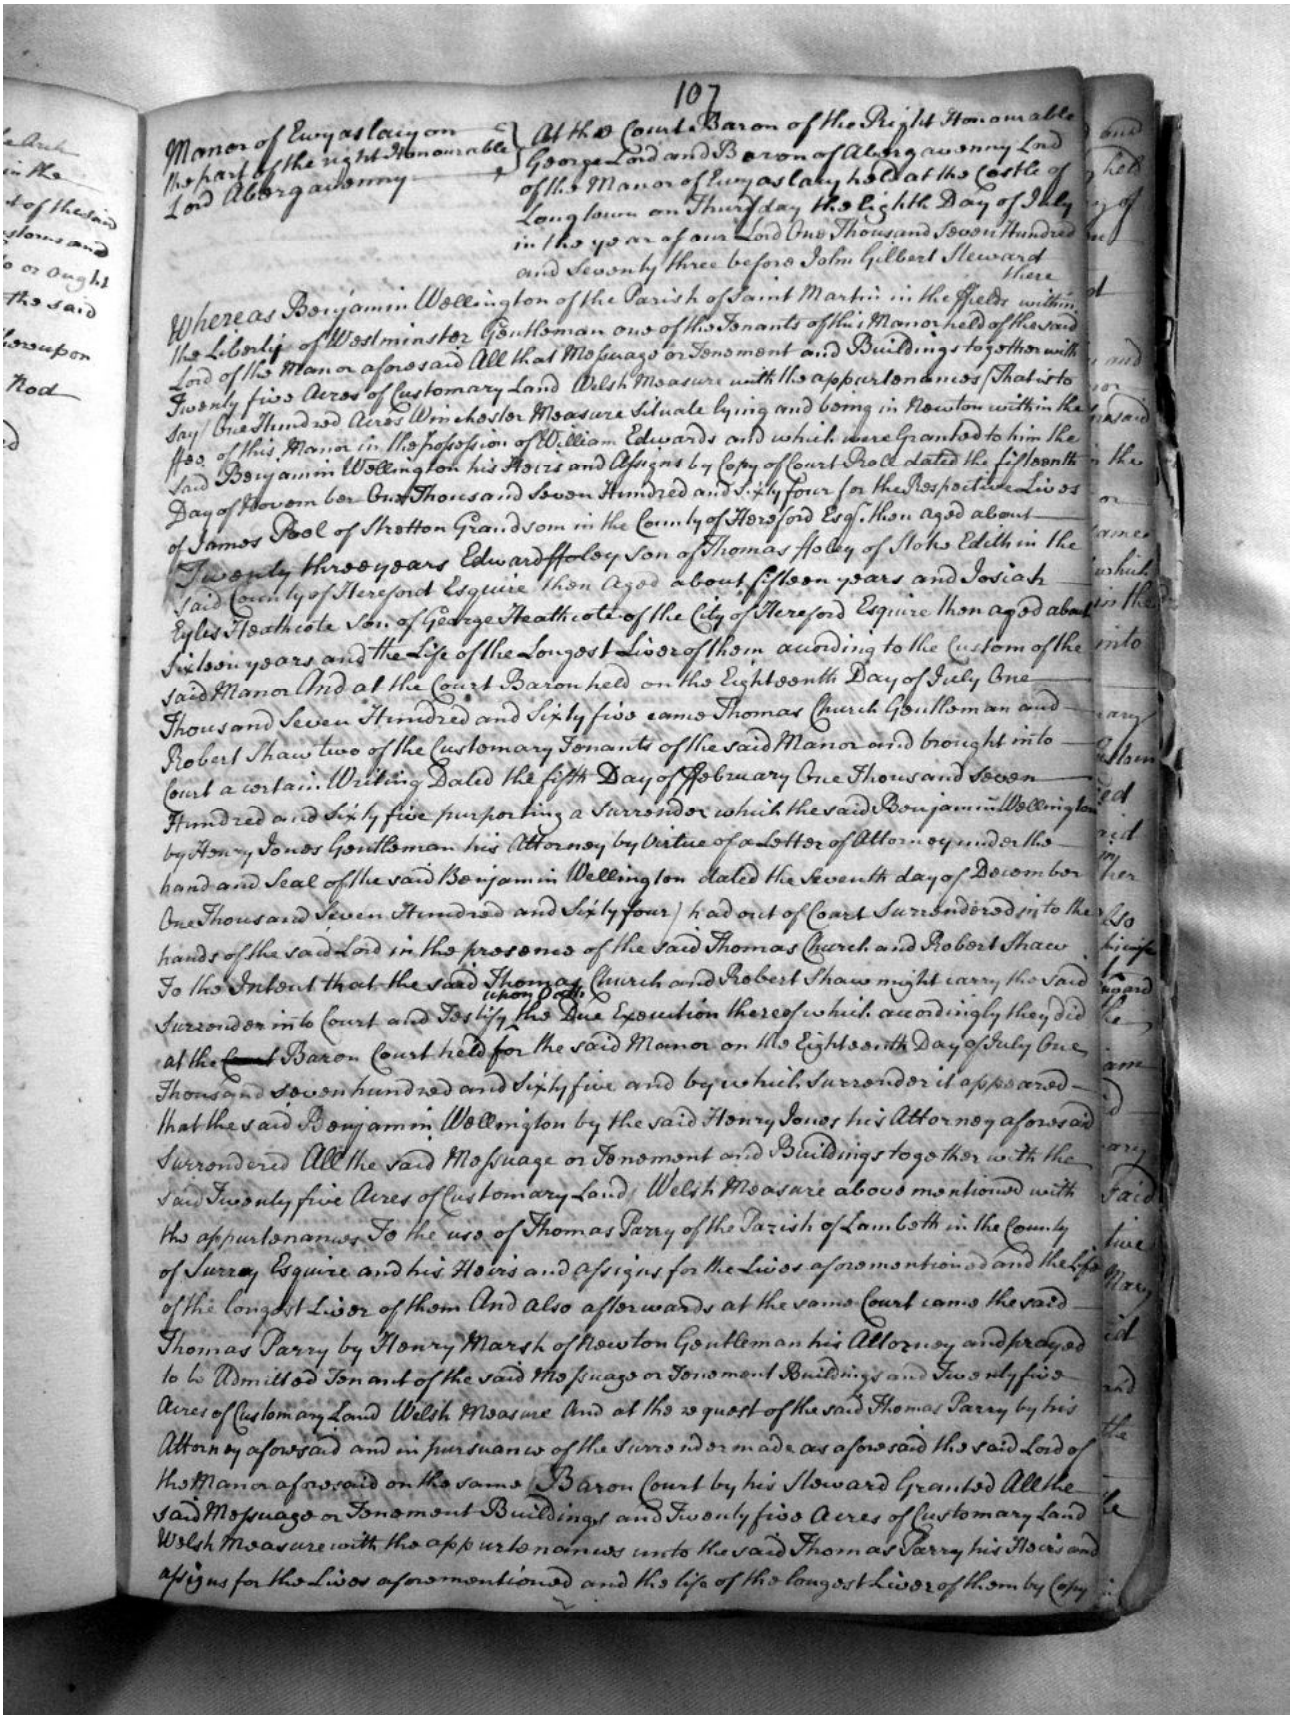 le Arch
in the
t of the said
stoms and
do or ought
the said
hereupon
Rod
ed
107
Manor of Ewyaslacy on
the part of the right Honourable
Lord Abergavenny
At the Court Baron of the Right Honourable
George Lord and Baron of Abergavenny Lord
of the Manor of Ewyaslacy held at the Castle of
Longtown on Thursday the Eighth Day of July
in the year of our Lord One Thousand Seven Hundred
and Seventy three before John Gilbert Steward
there
Whereas Benjamin Wellington of the Parish of Saint Martin in the ffields within
the Liberty of Westminster Gentleman one of the Tenants of this Manor held of the said
Lord of the Manor aforesaid All that Messuage or Tenement and Buildings together with
Twenty five Acres of Customary Land Welsh Measure with the appurtenances (That is to
say) One Hundred Acres Winchester Measure Situate lying and being in Newton within the
ffee of this Manor in the possession of William Edwards and which were Granted to him the
said Benjamin Wellington his Heirs and Assigns by Copy of Court Roll dated the fifteenth
Day of November One Thousand Seven Hundred and Sixty four for the Respective Lives
of James Pool of Stretton Grandsom in the County of Hereford Esqr. then aged about
Twenty three years Edward ffoley son of Thomas ffoley of Stoke Edith in the
said County of Hereford Esquire then aged about fifteen years and Josiah
Eyles Heathcote Son of George Heathcote of the City of Hereford Esquire then aged about
Sixteen years and the Life of the Longest Liver of them acording to the Custom of the
said Manor And at the Court Baron held on the Eighteenth Day of July One
Thousand Seven Hundred and Sixty five came Thomas Church Gentleman and
Robert Shaw two of the Customary Tenants of the said Manor and brought into
Court a certain Writing Dated the fifth Day of ffebruary One Thousand Seven
Hundred and Sixty five purporting a Surrender which the said Benjamin Wellington
by Henry Jones Gentleman his Attorney by Virtue of a Letter of Attorney under the
hand and Seal of the said Benjamin Wellington dated the Seventh day of December
One Thousand Seven Hundred and Sixty four) had out of Court Surrendered into the
hands of the said Lord in the presence of the said Thomas Church and Robert Shaw
To the Intent that the said Thomas Church and Robert Shaw might carry the said
upon Oath
Surrender into Court and Testify the Due Execution thereof which accordingly they did
at the Court Baron Court held for the said Manor on the Eighteenth Day of July One
Thousand seven hundred and Sixty five and by which Surrender it appeared
that the said Benjamin Wellington by the said Henry Jones his Attorney aforesaid
Surrendered All the said Messuage or Tenement and Buildings together with the
said Twenty five Acres of Customary Land Welsh Measure above mentioned with
the appurtenances To the use of Thomas Parry of the Parish of Lambeth in the County
of Surrey Esquire and his Heirs and Assigns for the Lives aforementioned and the Life
of the longest Liver of them And also afterwards at the same Court came the said
Thomas Parry by Henry Marsh of Newton Gentleman his Attorney and prayed
to be Admitted Tenant of the said Messuage or Tenement Buildings and Twenty five
Acres of Customary Land Welsh Measure And at the request of the said Thomas Parry by his
Attorney aforesaid and in pursuance of the Surrender made as aforesaid the said Lord of
the Manor aforesaid on the same Baron Court by his Steward Granted All the
said Messuage or Tenement Buildings and Twenty five Acres of Customary Land
Welsh Measure with the appurtenances unto the said Thomas Parry his Heirs and
assigns for the Lives aforementioned and the life of the longest Liver of them by Copy